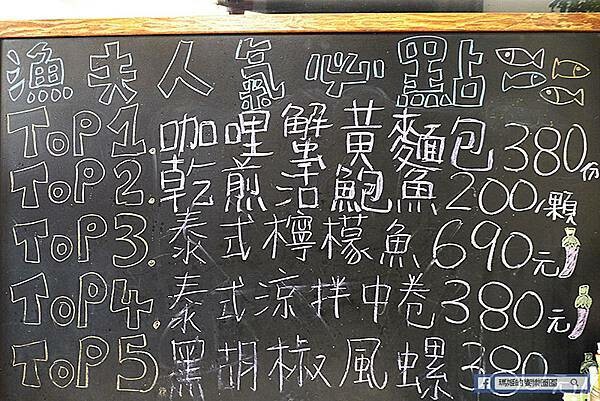 漁夫人氣必點
TOP1. 咖哩蟹黃麵包380份
TOP2. 乾煎活鮑魚200/顆
TOP3. 泰式檸檬魚690元
TOP4. 泰式涼拌中卷380元
TOP5. 黑胡椒風螺380